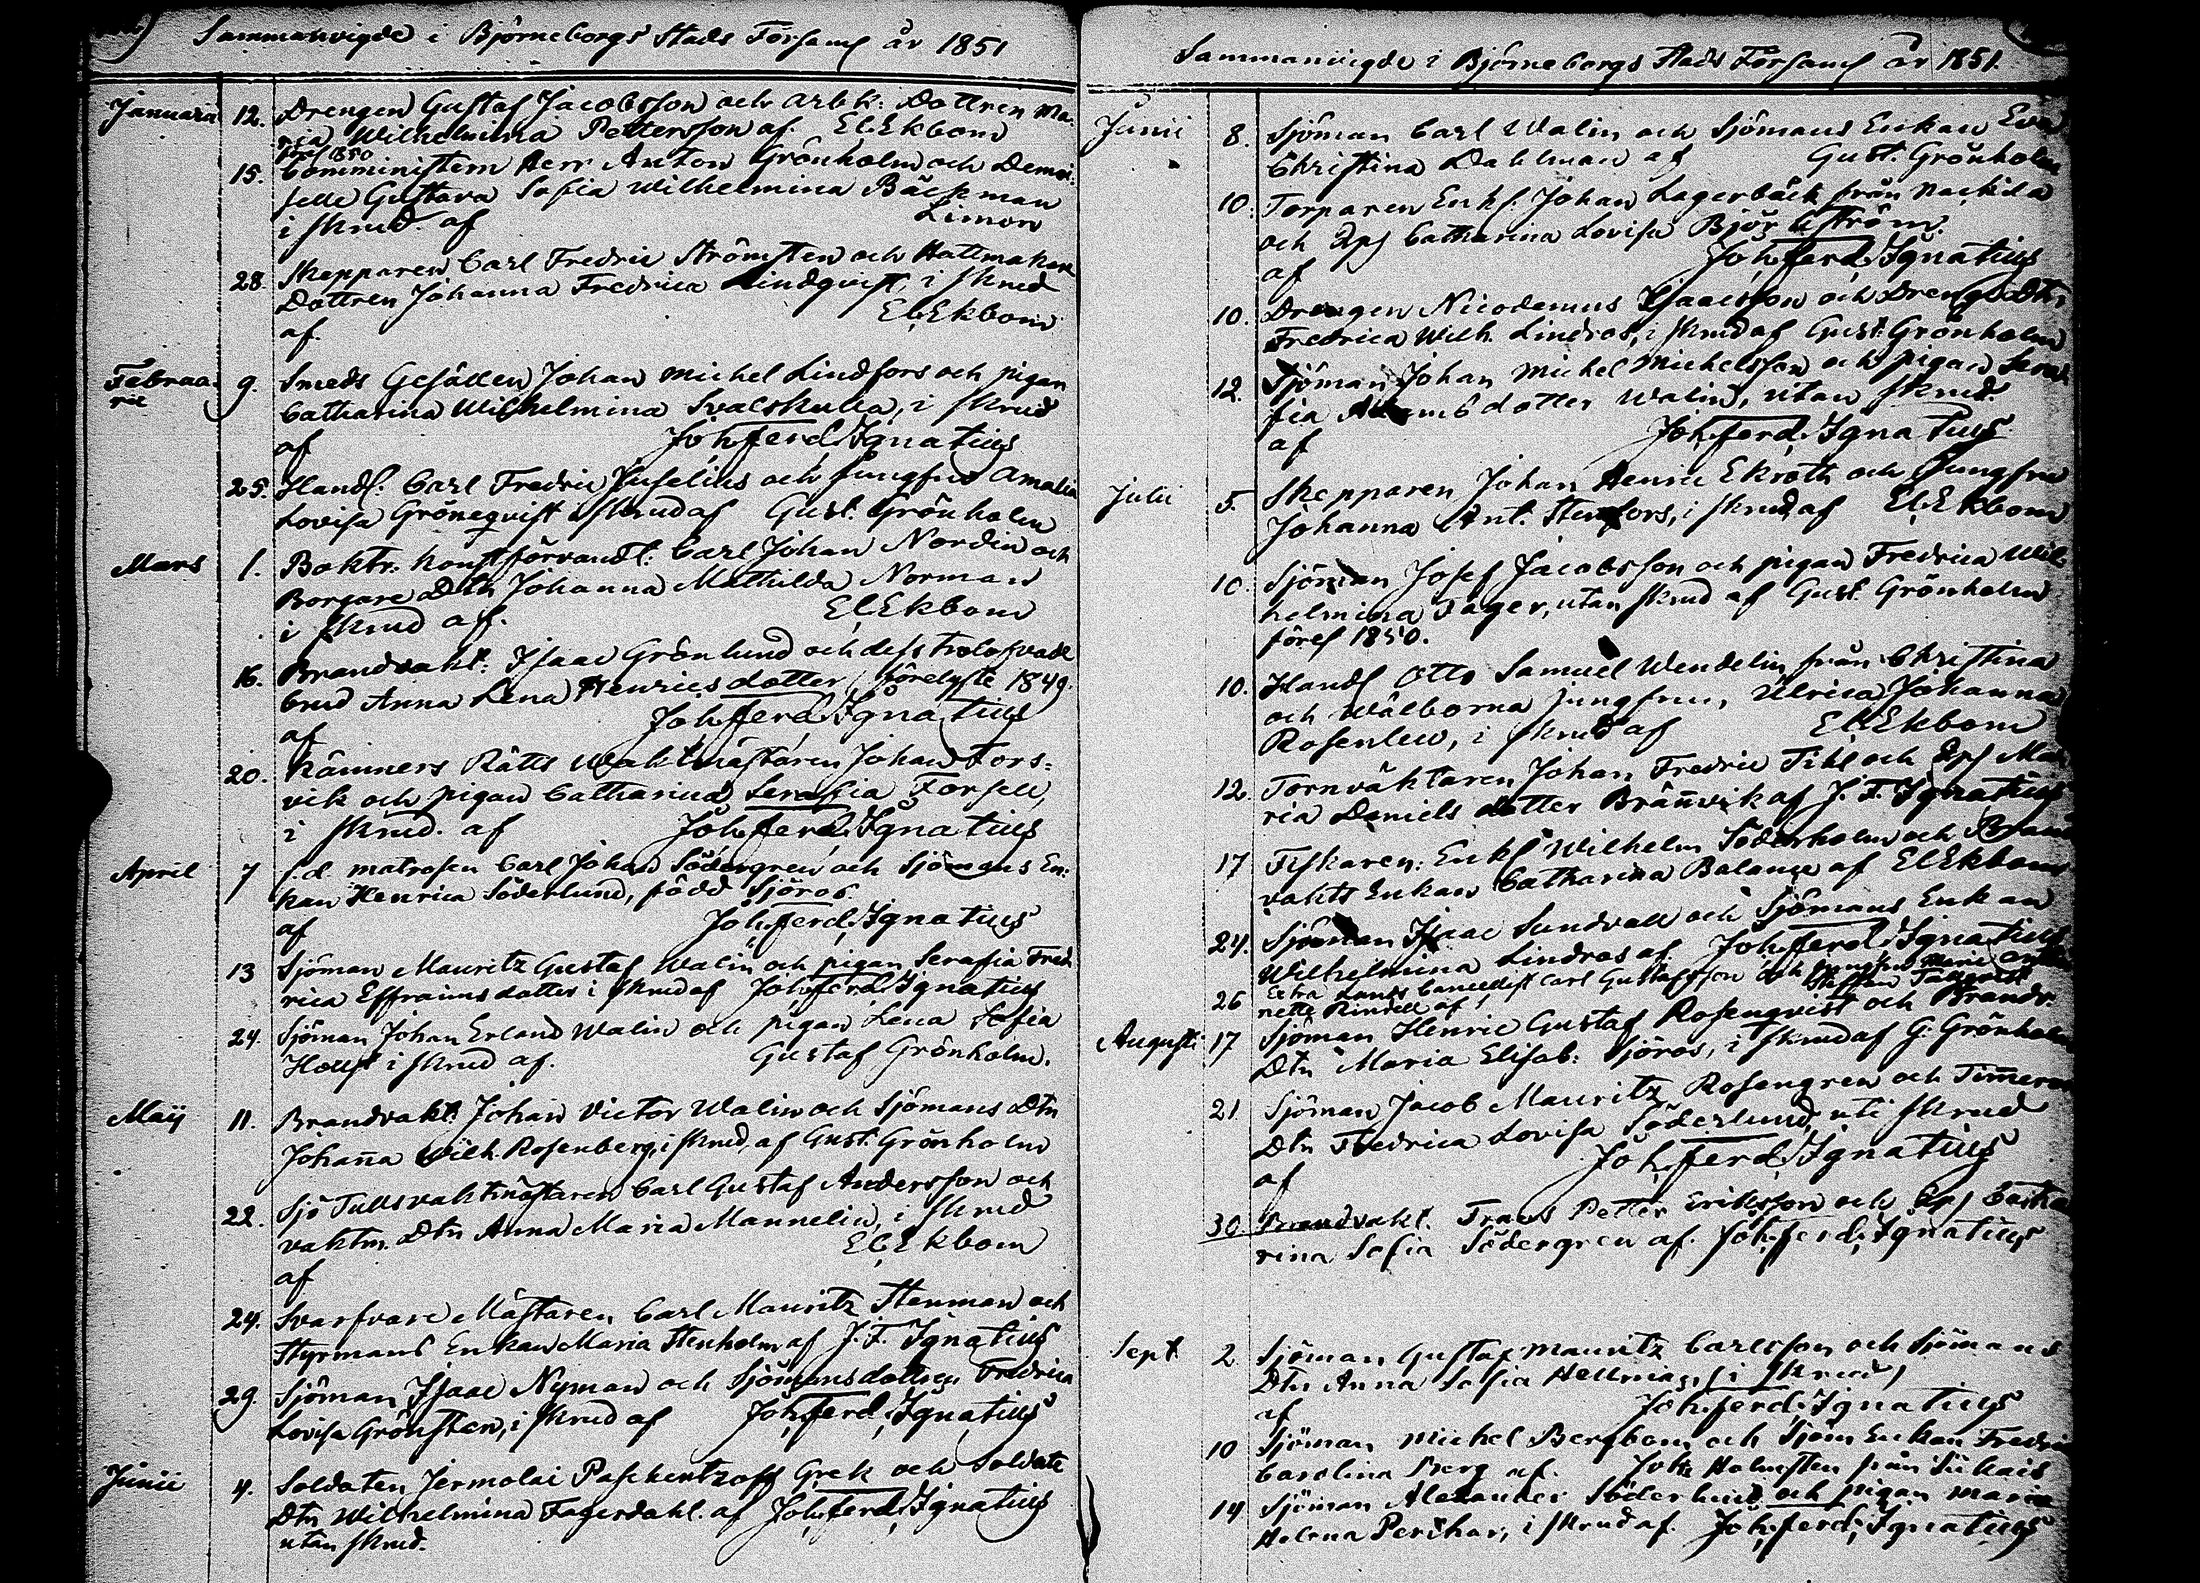 Sammanvigde i Björneborgs Stads Församl år 1851
Januarii 12. Drengen Gustaf Jacobsson och arbk: Dottren Ma-
ria Wilhelmina Pettersson af. El. Ekbom
1850
15. Comministern Herr Anton Grönholm och Demoi-
selle Gustava Sofia Wilhelmina Bäckman
i skrud. af Limon
28. Skepparen Carl Fredric Strömsten och Hattmakare
Dottren Johanna Fredrica Lindqvist, i skrud
af. El. Ekbom
Februa- 9. Smeds Gesällen Johan Michel Lindfors och pigan
rii Catharina Wilhelmina Svalskulla, i skrud
af Joh. Ferd. Ignatius
25. Handl. Carl Fredric Juselius och Jungfru Amalia
Lovisa Gröneqvist i skrud af Gust. Grönholm
Mars 1. Boktr. konstförvandt: Carl Johan Nordin och
Borgare Dtn Johanna Mathilda Norman
i skrud af. El. Ekbom
16. Brandvakt: Isaac Grönlund och dess trolofvade
brud Anna Lena Henrics dotter, förelyste 1849.
af Joh. Ferd. Ignatius
20. Kämners Rätts Waktmästaren Johan Fors-
vik och pigan Catharina Serafia Forsell,
i skrud. af Joh. Ferd. Ignatius
April 7 f.d. matrosen Carl Johan Södergren och Sjömans En-
kan Henrica Söderlund, född Sjöros.
af Joh. Ferd. Ignatius
13 Sjöman Mauritz Gustaf Walin och pigan Serafia Fred-
rica Effraims dotter i skrud af Joh. Ferd. Ignatius
24. Sjöman Johan Erland Walin och pigan Lena Sofia
Hollst i skrud af. Gustaf Grönholm.
Maij 11. Brandvakt: Johan Victor Walin och Sjömans Dtn
Johanna Wilh. Rosenberg, i skrud, af Gust. Grönholm
22. Sjö Tullsvaktmästaren Carl Gustaf Andersson och
vaktm. Dtn Anna Maria Mannelin, i skrud
af El. Ekbom
24. Svarfvare Mästaren Carl Mauritz Stenman och
Styrmans Enkan Maria Stenholm af J. F. Ignatius
29. Sjöman Isaac Nyman och Sjömansdottren Fredrica
Lovisa Grönsten, i skrud af Joh. Ferd. Ignatius
Junii 4. Soldaten Jermolai Paschentzoff Grek och Soldate
Dtn Wilhelmina Fagerdahl. af Joh. Ferd. Ignatius
utan skrud.
Sammanvigde i Björneborgs Stads Församl år 1851.
Junii 8. Sjöman Carl Walin och Sjömans Enkan Eva
Christina Dahlman af Gust. Grönholm
10. Torparen Enkl. Johan Lagerbäck från
och Qps Catharina Lovisa Björkström.
af Joh. Ferd. Ignatius
10. Drengen Nicodemus Isaacsson och Drengs Dtn
Fredrica Wilh. Lindros, i skrud af Gust. Grönholm
12. Sjöman Johan Michel Michelsson och pigan Sera-
fia Adams dotter Walin, utan skrud.
af Joh. Ferd. Ignatius
Julii 5 Skepparen Johan Henric Ekroth och Jungfru
Johanna Ant. Stenfors, i skrud af El. Ekbom
10. Sjöman Josef Jacobsson och pigan Fredrica Wil-
helmina Fager, utan skrud af Gust. Grönholm
förel 1850.
10. Handl Otto Samuel Wendelin från Christina
och Wälborna jungfrun, Ulrica Johanna
Rosenlew, i skrud af El. Ekbom
12. Tornväktaren Johan Fredric Fihl och Qps Ma-
ria Daniels dotter Brännvik af J. F. Ignatius
17 Fiskaren: Enkl Wilhelm Söderholm och Brand-
vakts Enkan Catharina Balange af El. Ekbom
24. Sjöman Isaac Sundvall och Sjömans Enkan
Wilhelmina Lindros af. Joh. Ferd. Ignatius
26 Extra Lands Cancellist Carl Gustafsson och Jungfru Maria
nette Rindell af
Augusti 17 Sjöman Henric Gustaf Rosenqvist och Brandv.
Dtn Maria Elisab: Sjöros, i skrud af G. Grönholm
21 Sjöman Jacob Mauritz Rosengren och Timmerm
Dtn Fredrica Lovisa Söderlund, uti skrud
af Joh. Ferd. Ignatius
30. Brandvakt. Frans Petter Eriksson och Qps Catha-
rina Sofia Södergren af. Joh. Ferd. Ignatius
Sept 2 Sjöman Gustaf Mauritz Carlsson och Sjömans
Dtn Anna Sofia Helling, i skrud,
af Joh. Ferd. Ignatius
10 Sjöman Michel Bergbom och Sjöm Enkan Fredrica
Carolina Berg af. Joh: Holmsten från
14 Sjöman Alexander Söderlund och pigan Maria
Helena Perihar, i skrud af. Joh. Ferd. Ignatius